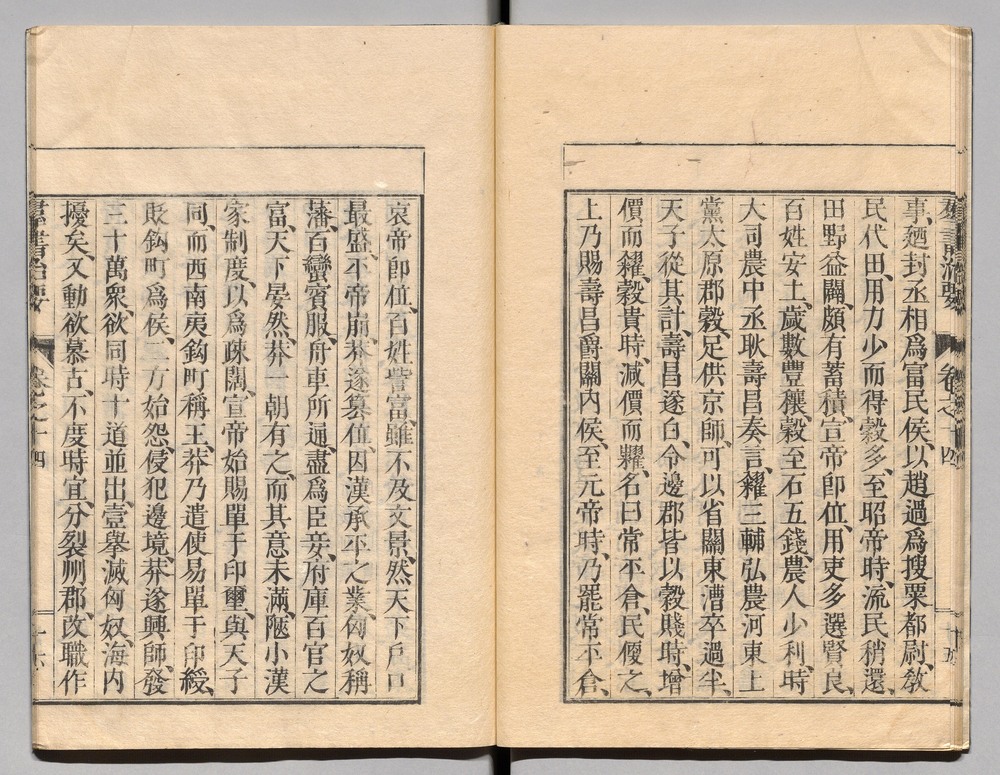 羣書治要 卷之十四 十五
事、廼封丞相爲富民侯、以趙過爲搜粟都尉、敎
民代田、用力少而得穀多、至昭帝時、流民稍還、
田野益闢、頗有蓄積、宣帝卽位、用吏多選賢良、
百姓安土、歲數豐穰、穀至石五錢、農人少利、時
大司農中丞耿壽昌奏言、糴三輔弘農河東上
黨太原郡穀、足供京師、可以省關東漕卒過半、
天子從其計、壽昌遂白、令邊郡皆以穀賤時、增
價而糴、穀貴時、減價而糶、名曰常平倉、民便之、
上乃賜壽昌爵關內侯、至元帝時、乃罷常平倉、
哀帝卽位、百姓訾富、雖不及文景、然天下戶口
最盛、平帝崩、莽遂簒位、因漢承平之業、匈奴稱
藩、百蠻賓服、舟車所通、盡爲臣妾、府庫百官之
富、天下晏然、莽一朝有之、而其意未滿、陿小漢
家制度、以爲疎闊、宣帝始賜單于印璽、與天子
同、而西南夷鈎町稱王、莽乃遣使易單于印綬、
貶鈎町爲侯、二方始怨、侵犯邊境、莽遂興師、發
三十萬衆、欲同時十道並出、壹舉滅匈奴、海內
擾矣、又動欲慕古、不度時宜、分裂州郡、改職作
羣書治要 卷之十四 十六